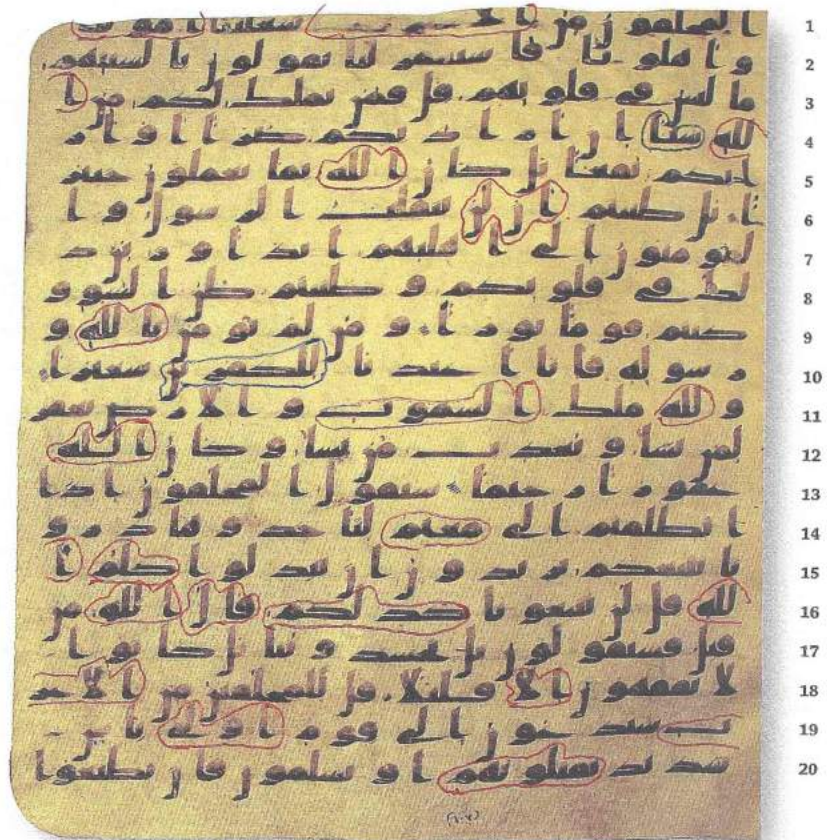 المخلفون من الاعرب شغلتنا امولنا 1
واهلونا فاستغفر لنا يقولون بالسنتهم 2
ما ليس في قلوبهم قل فمن يملك لكم من ا 3
لله شيا ان اراد بكم ضرا او اراد 4
بكم نفعا بل كان الله بما تعملون خبير 5
ا بل ظننتم ان لن ينقلب الرسول وا 6
لمومنون الي اهليهم ابدا وزين ذ 7
لك في قلوبكم وظننتم ظن السو و 8
كنتم قوما بورا ومن لم يومن بالله و 9
رسوله فانا اعتدنا للكفرين سعيرا 10
ولله ملك السموت والارض يغفر 11
لمن يشا ويعذب من يشا وكان الله 12
غفورا رحيما سيقول المخلفون اذا 13
انطلقتم الي مغنم لتاخذوها ذرو 14
نا نتبعكم يريدون ان يبدلوا كلم ا 15
لله قل لن تتبعونا كذلكم قال الله من 16
قبل فسيقولون بل تحسدوننا بل كانوا 17
لا يفقهون الا قليلا قل للمخلفين من الاعر 18
ب ستدعون الي قوم اولي باس 19
شديد تقتلونهم او يسلمون فان تطيعوا 20